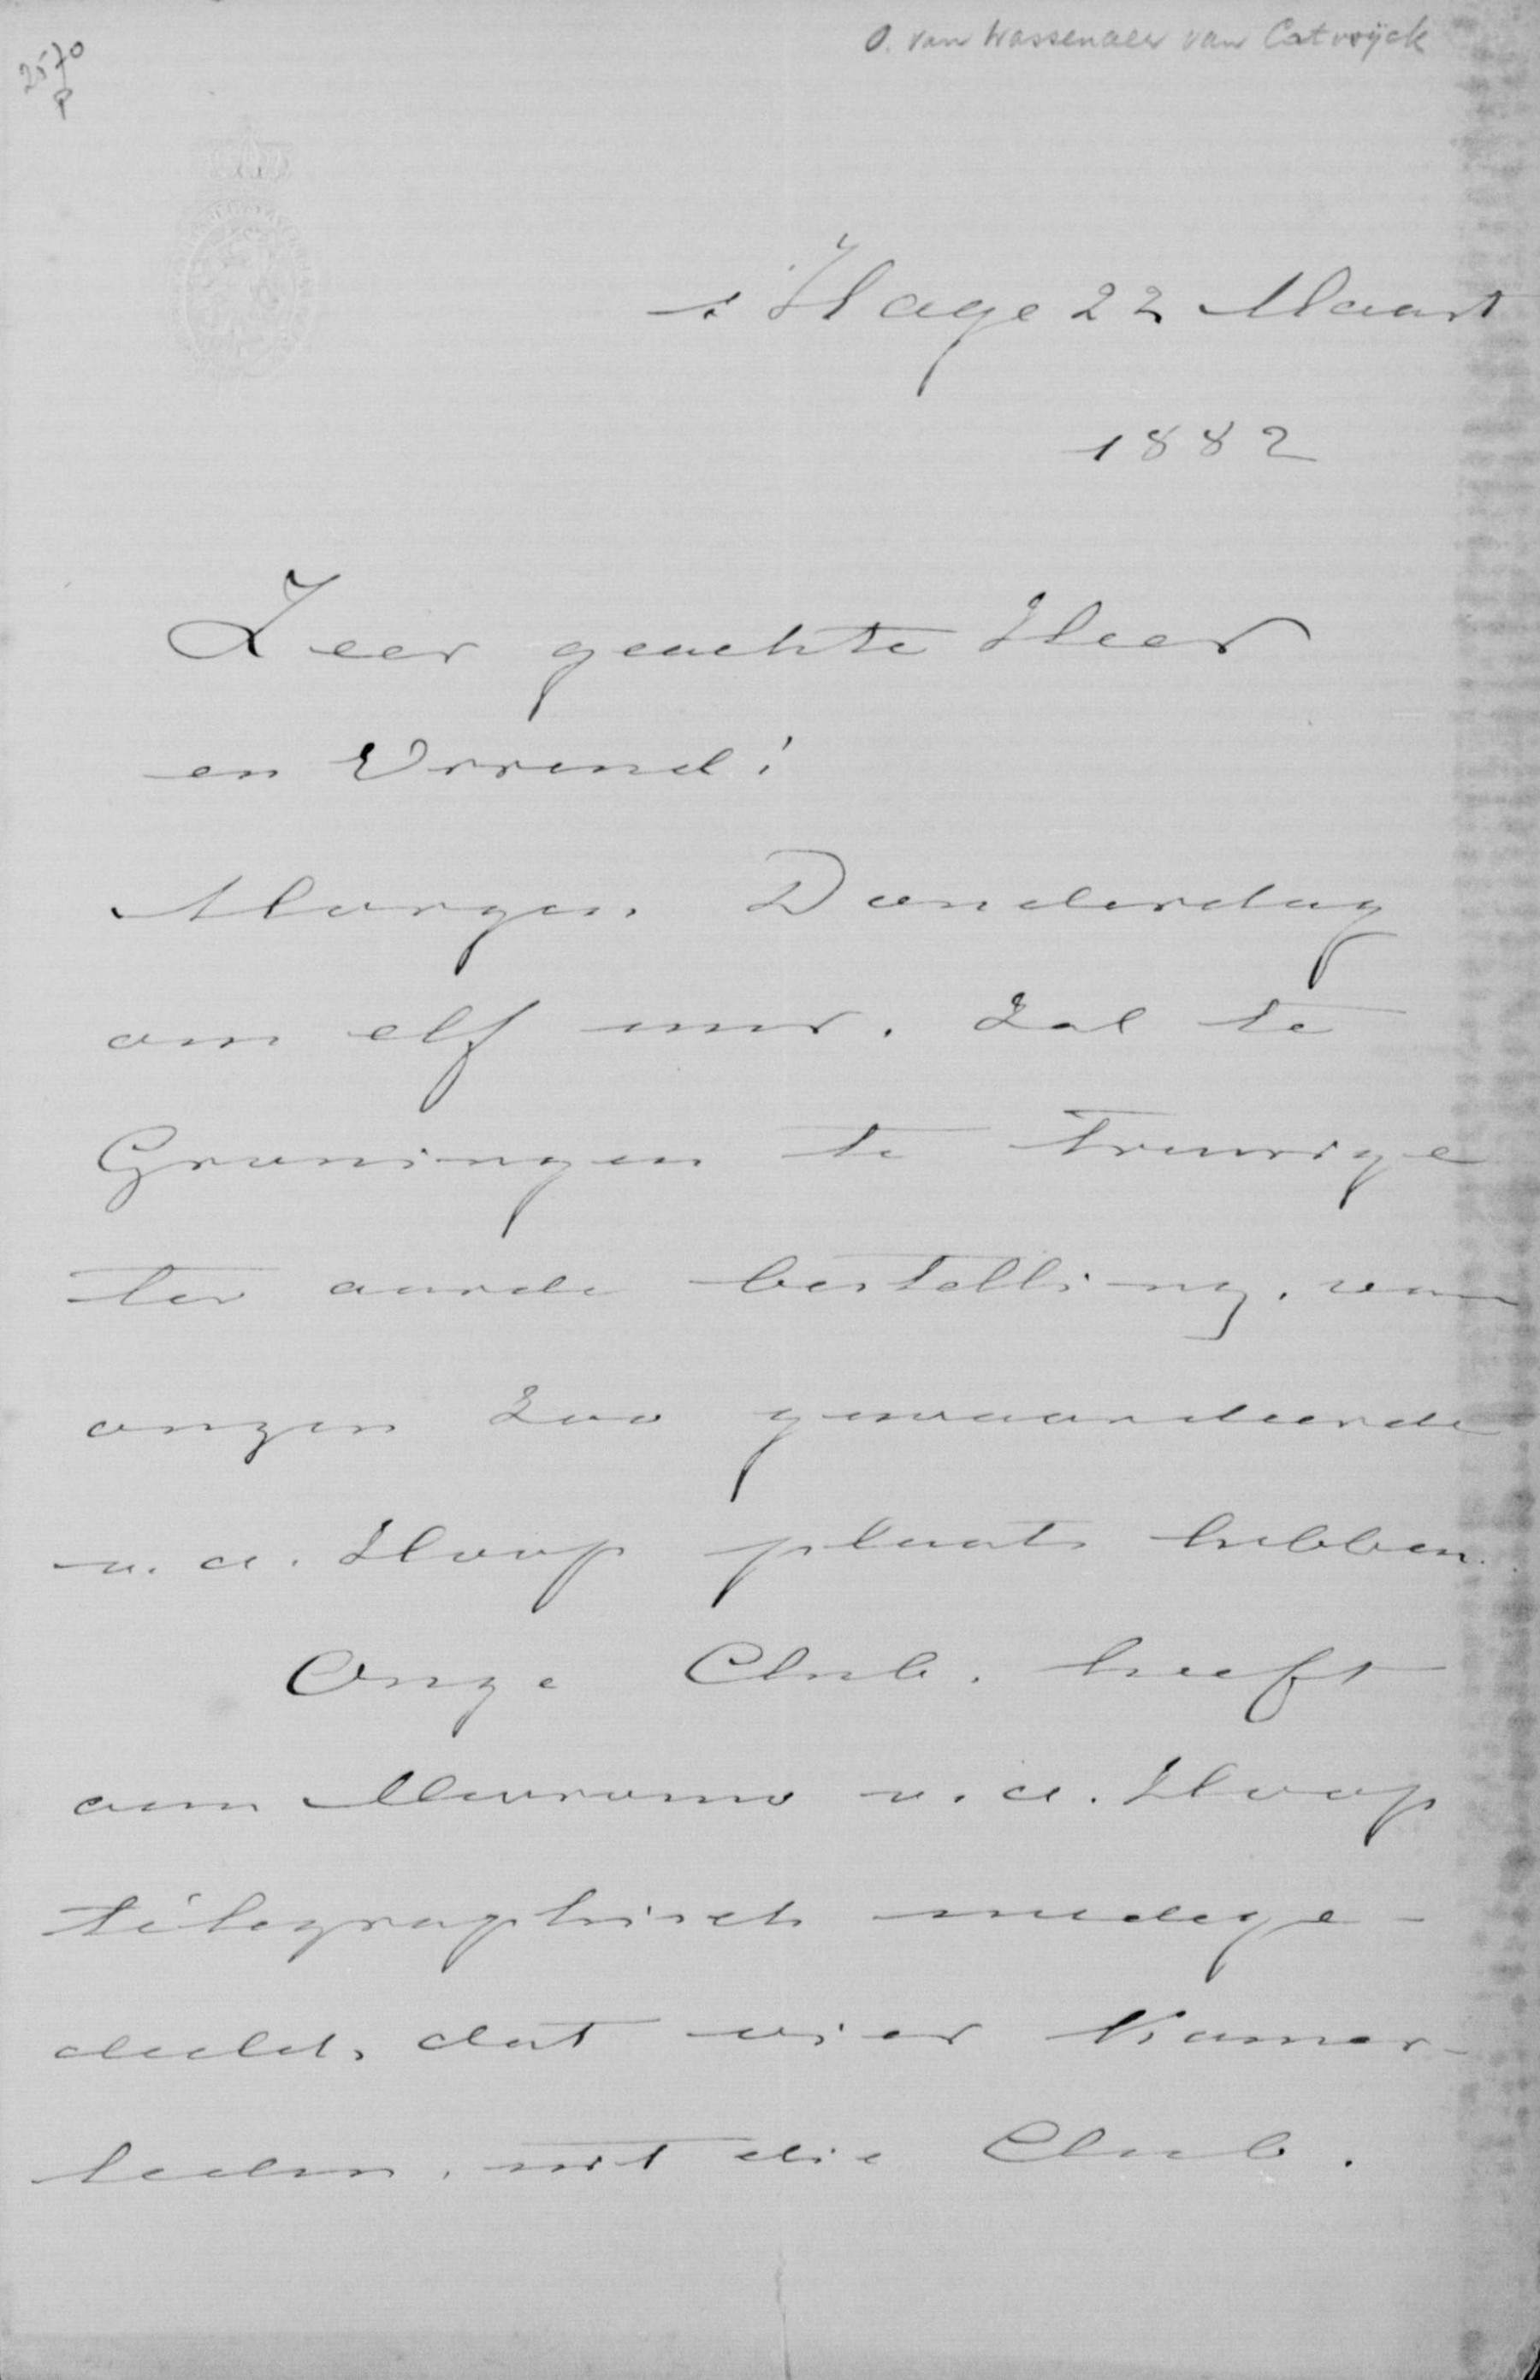 O. van Wassenaer van Catwijck
2570
P
s Hage 22 Maart
1882
Zeer geachte Heer
en Vriend!
Morgen Donderdag
om elf uur. zal te
Groningen te treurige
ter aarde bestelling. van
onzen zoo gewaardeerde
v. d. Hoop plaats hebben.
Onze Club. heeft
aan Mevrouw v. d. Hoop
télegraphisch medege-
deeld, dat vier Kamer-
leden, uit die Club.